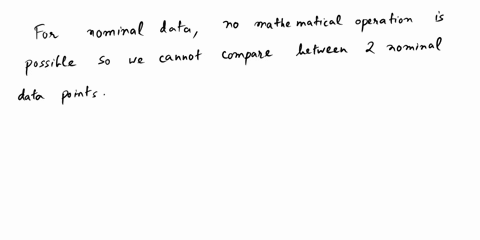 For nominal data, no mathematical operation is
possible so we cannot compare between 2 nominal
data points.